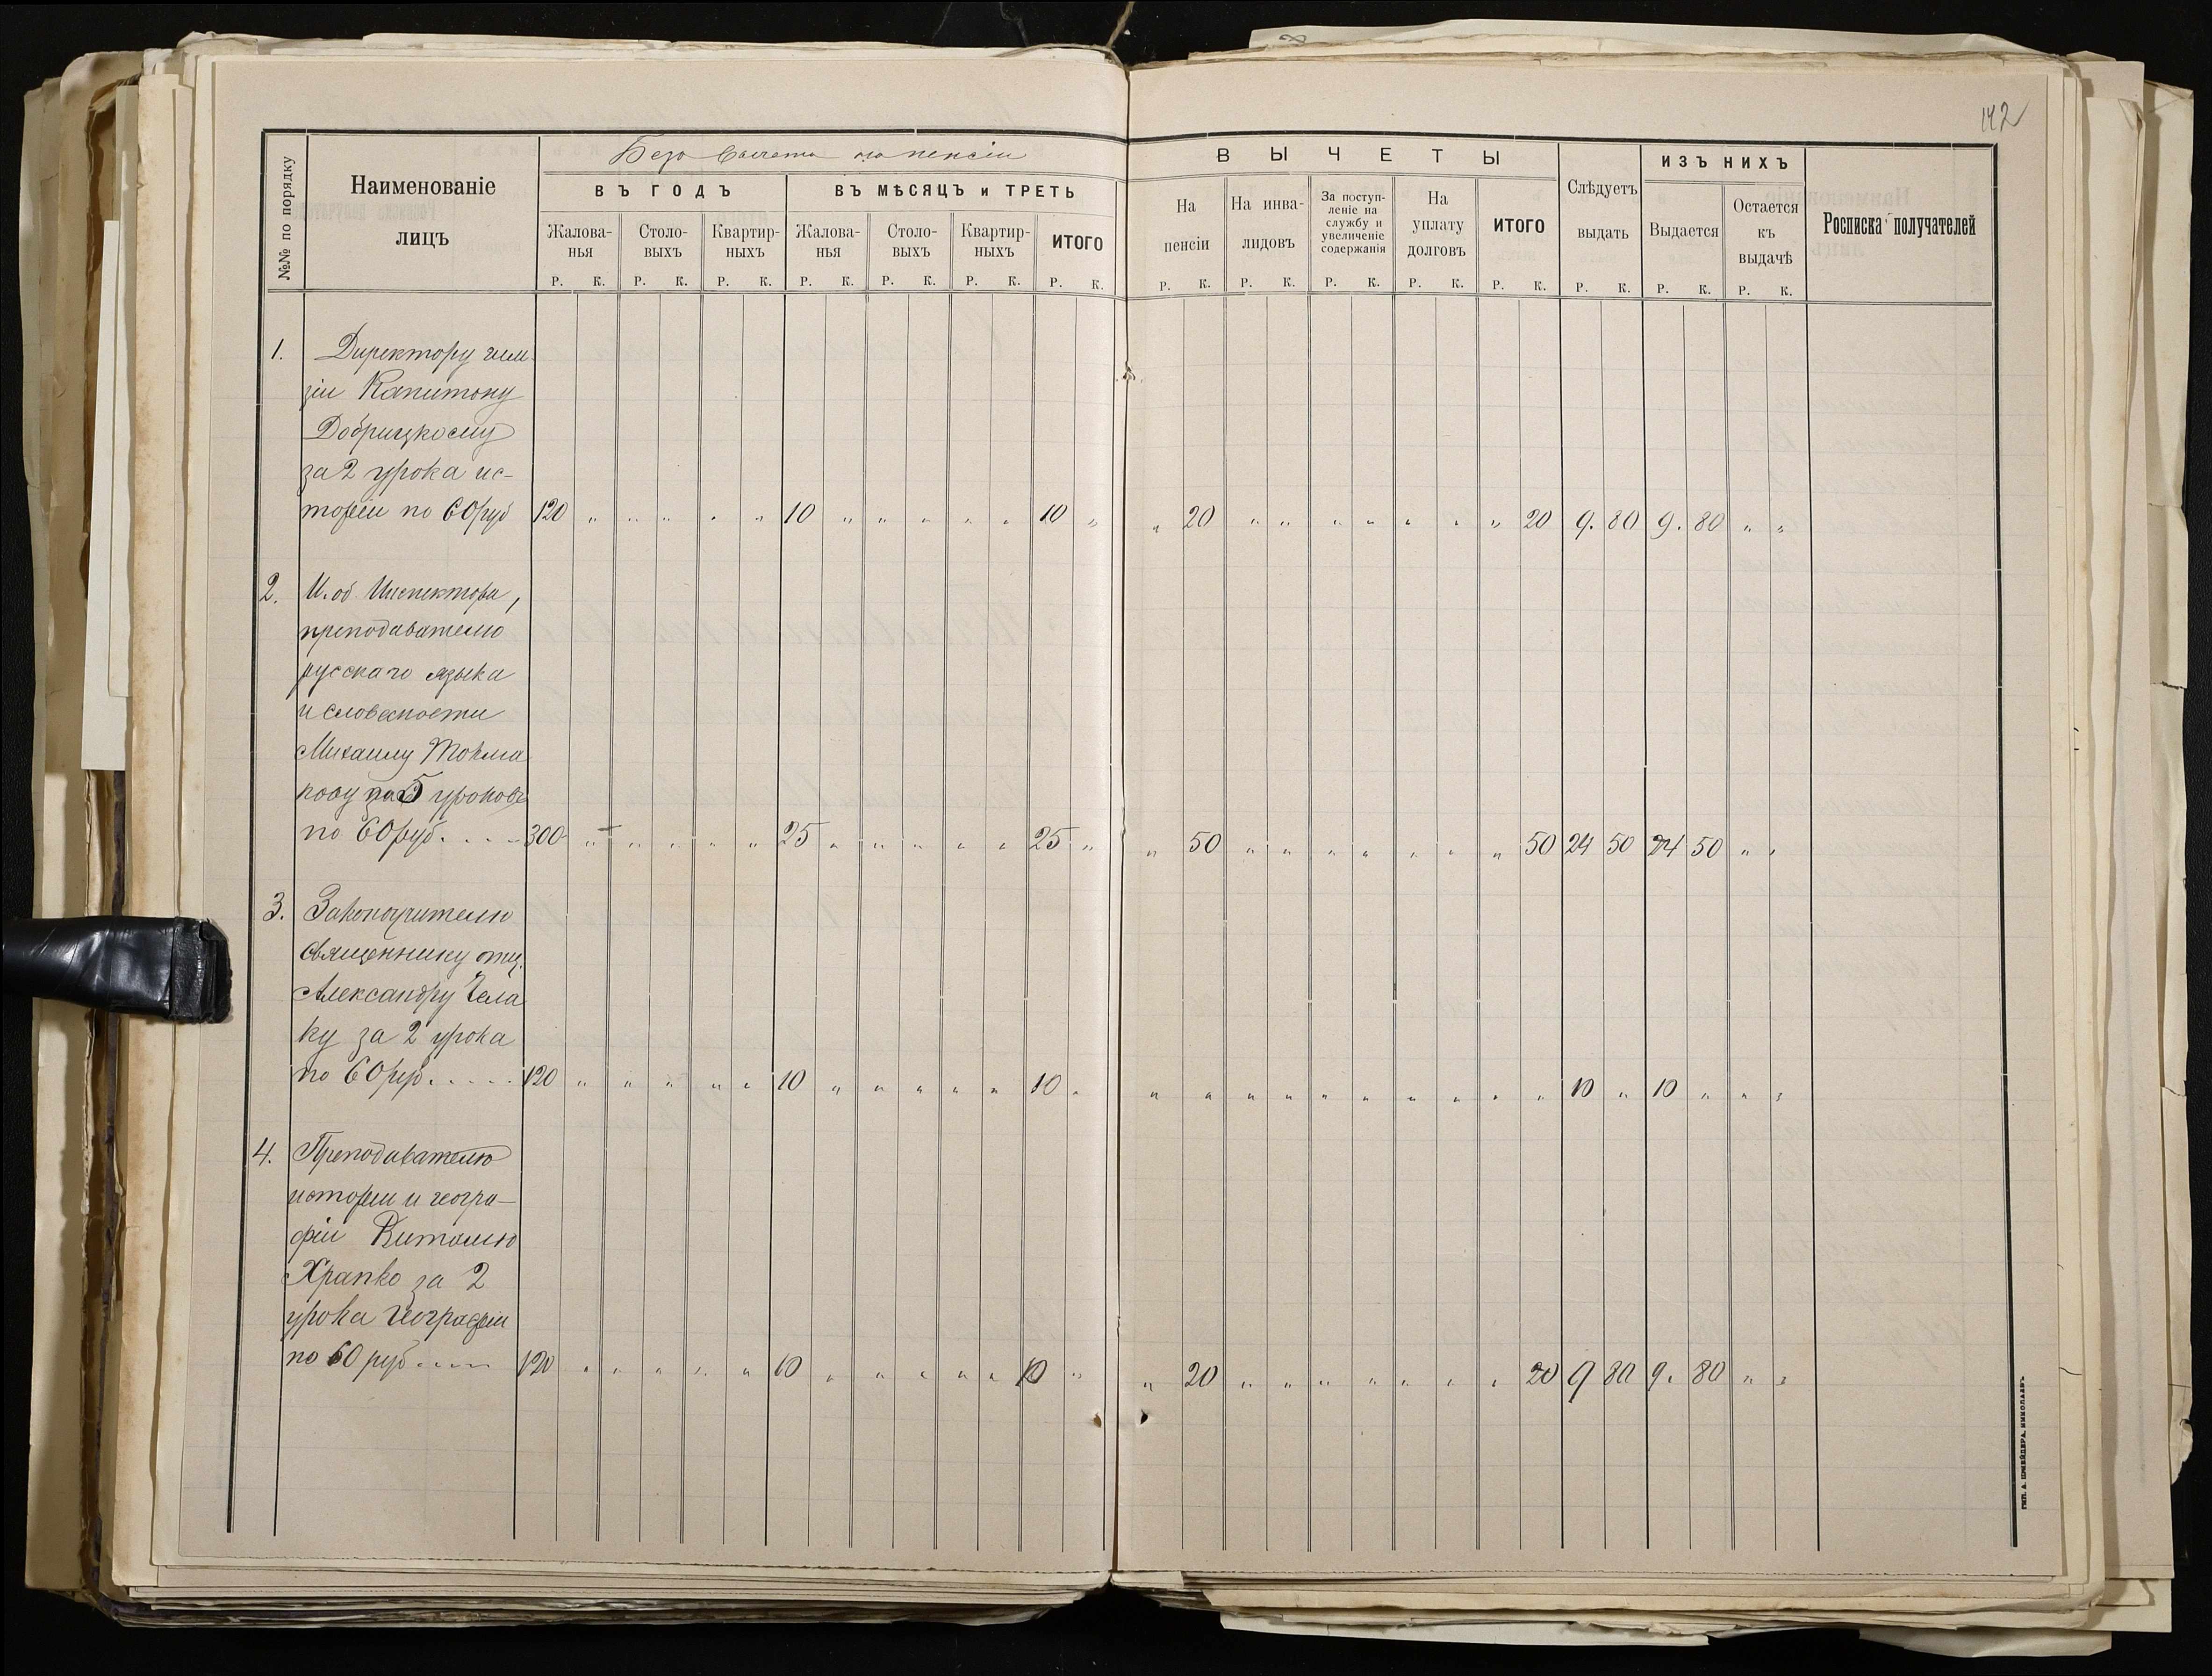 142
№№ по порядку
Наименованіе
лицъ
Безъ вычета на пенсіи
ВЪ ГОДЪ
ВЪ МѢСЯЦЪ и ТРЕТЬ
Жалова-
нья
Столо-
выхъ
Квартир-
ныхъ
Жалова-
нья
Столо-
выхъ
Квартир-
ныхъ
ИТОГО
Р. К. Р. К. Р. К. Р. К. Р. К. Р. К. Р. К.
ВЫЧЕТЫ
На
пенсіи
На инва-
лидовъ
За поступ-
леніе на
службу и
увеличеніе
содержанія
На
уплату
долговъ
ИТОГО
Слѣдуетъ
выдать
ИЗЪ НИХЪ
Выдается
Остается
къ
выдачѣ
Росписка получателей
Р. К. Р. К. Р. К. Р. К. Р. К. Р. К. Р. К. Р. К.
1. Директору гим-
зіи Капитону
Добрицкому
за 2 урока ис-
торіи по 60 руб 120 „ „ „ „ „ 10 „ „ „ „ „ 10 „ „ 20 „ „ „ „ „ „ „ 20 9. 80 9. 80 „ „
2. И. об. Инспектора,
преподавателю
русскаго языка
и словесности
Михаилу Товма
кову за 5 уроковъ
по 60 руб. . . . 300 „ „ „ „ „ 25 „ „ „ „ „ 25 „ „ 50 „ „ „ „ „ „ „ 50 24 50 24 50 „ „
3. Законоучителю
священнику отц.
Александру Чела
ку за 2 урока
по 60 руб. . . . . 120 „ „ „ „ „ 10 „ „ „ „ „ 10 „ „ „ „ „ „ „ „ „ „ „ 10 „ 10 „ „ „
4. Преподавателю
исторіи и геогра-
фіи Виталію
Храпко за 2
урока географіи
по 60 руб . . . . 120 „ „ „ „ „ 10 „ „ „ „ „ 10 „ „ 20 „ „ „ „ „ „ „ 20 9 80 9. 80 „ „
ТИП. А. ШНЕЙДЕРА, НИКОЛАЕВЪ